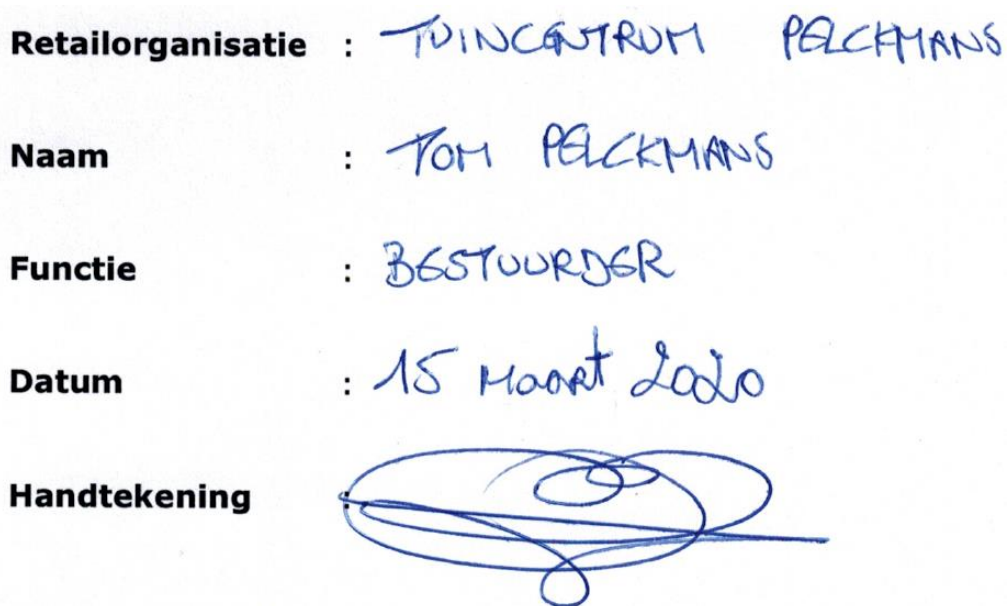 Retailorganisatie : TUINCENTRUM PELCKMANS
Naam : TOM PELCKMANS
Functie : BESTUURDER
Datum : 15 Maart 2020
Handtekening :